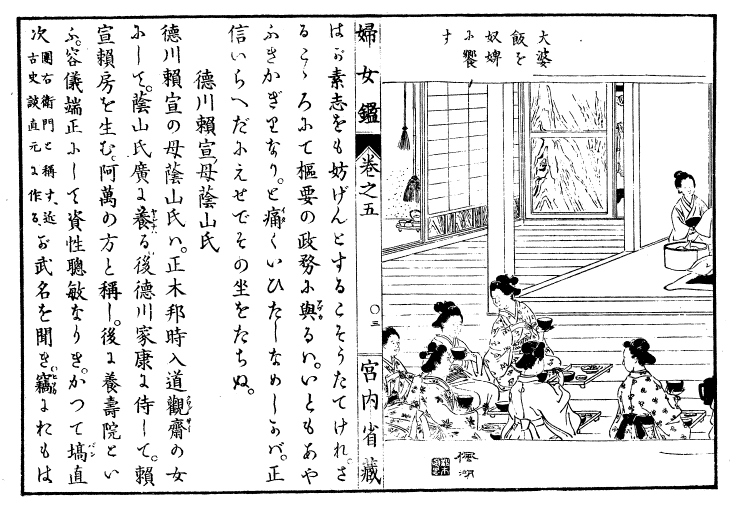 大婆
飯を
奴婢
に饗
す
楓湖
婦女鑑
巻之五
〇三
宮内省蔵
はが素志をも妨げんとするこそうたてけれ。さ
るこゝろにて樞要の政務に與るハ。いともあや
ふきかぎりなり。と痛くいひたしなめしかバ。正
信いらへだにえせでその坐をたちぬ。
德川賴宣ノ母蔭山氏
德川賴宣の母蔭山氏ハ。正木邦時入道觀齋の女
にして。蔭山氏廣に養る後德川家康に侍して。賴
宣賴房を生む。阿萬の方と稱し。後に養壽院とい
ふ。容儀端正にして資性聰敏なりき。かつて塙直
次團右衛門と稱す、近古史談直元に作る、が武名を聞き竊にれもは